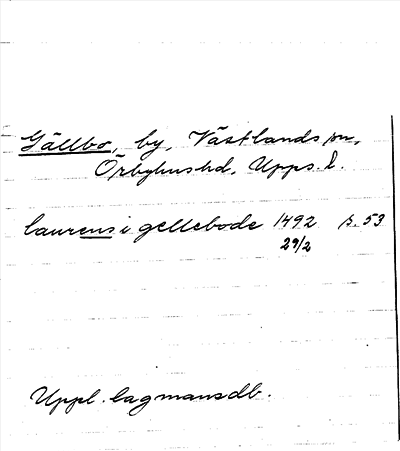 Gällbo, by, Västlands sn,
Örbyhus hd, Upps. l.
laurens i gellebode 1492 s. 53
29/2
Uppl. lagmansdb.